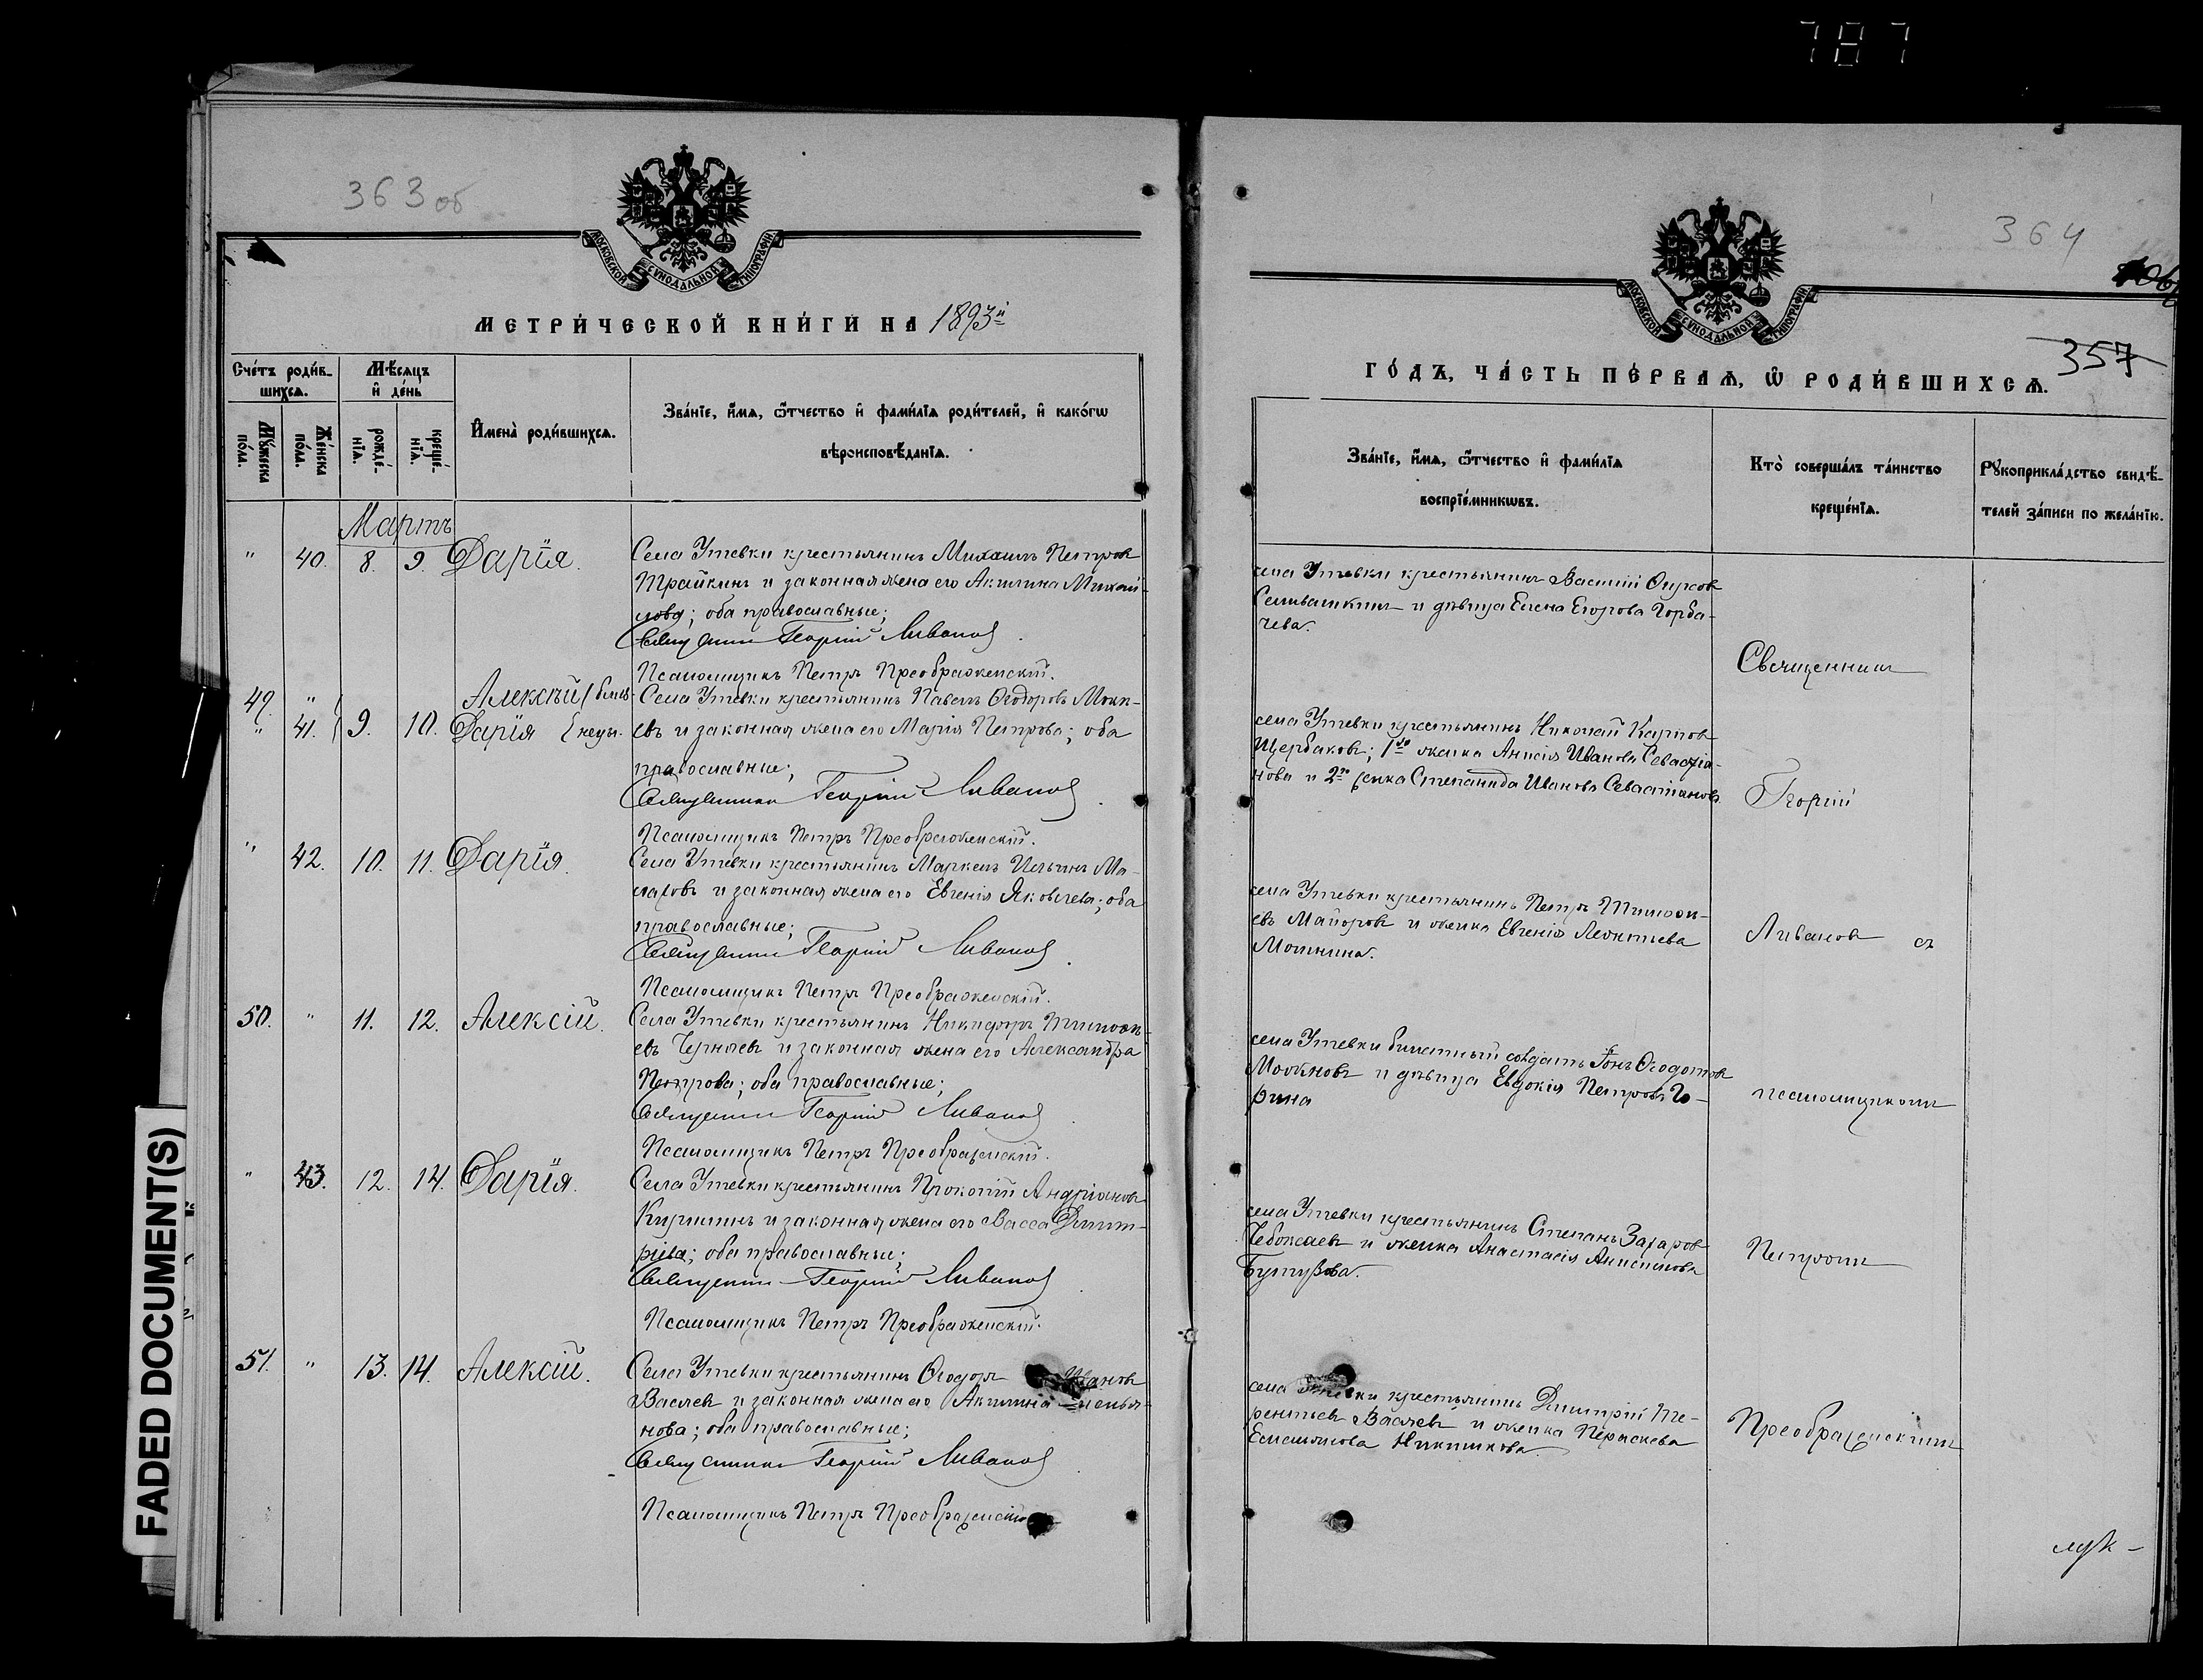 787
363 об
МОСКОВСКОЙ СѴНОДАЛЬНОЙ ТИПОГРАФІИ
МЕТРИ́ЧЕСКОЙ КНИ́ГИ НА 1893й
Сче́тъ роди́в-
шихсѧ.
Мѣ́сяцъ
и҆ де́нь
Мꙋ́жеска
по́ла.
Же́нска
по́ла.
рожде́-
нїѧ.
креще́-
нїѧ.
И҆мена̀ роди́вшихсѧ.
Зва́нїе, и҆́мѧ, ѻ҆́тчество и҆ фами́лїѧ роди́телей, и҆ како́гѡ
вѣроисповѣ́данїѧ.
Мартъ
" 40. 8. 9. Дарія. Села Утевки крестьянинъ Михаилъ Петров
Трайкинъ и законная жена его Акилина Михай-
лова; оба православные;
Священникъ Георгій Ливанов
Псаломщикъ Петръ Преображенскій.
49. " Алексѣй Села Утевки крестьянинъ Павелъ Ѳеодоровъ Моки-
" 41. 9. 10. Дарія евъ и законная жена его Марія Петрова; оба
православные;
Священникъ Георгій Ливанов
Псаломщикъ Петръ Преображенскій.
" 42. 10. 11. Дарія. Села Утевки крестьянинъ Маркелъ Ильинъ Ма-
лаховъ и законная жена его Евгенія Яковлева; оба
православные;
Священникъ Георгій Ливанов
Псаломщикъ Петръ Преображенскій.
50. " 11. 12. Алексій. Села Утевки крестьянинъ Никифоръ Тимоѳе-
евъ Черновъ и законная жена его Александра
Петрова; оба православные;
Священникъ Георгій Ливанов
Псаломщикъ Петръ Преображенскій.
" 43. 12. 14. Дарія. Села Утевки крестьянинъ Прокопій Андріановъ
Киршинъ и законная жена его Васса Димит-
ріева; оба православные;
Священникъ Георгій Ливанов
Псаломщикъ Петръ Преображенскій.
51. " 13. 14. Алексій. Села Утевки крестьянинъ Ѳеодоръ Ивановъ
Васяевъ и законная жена его Акилина
нова; оба православные;
Священникъ Георгій Ливанов
Псаломщикъ Петръ Преображенскій
364
357
МОСКОВСКОЙ СѴНОДАЛЬНОЙ ТИПОГРАФІИ
ГО́ДЪ, ЧА́СТЬ ПЕ́РВАѦ, Ѡ҆ РОДИ́ВШИХСѦ.
Зва́нїе, и҆́мѧ, ѻ҆́тчество и҆ фами́лїѧ
воспрїе́мникѡвъ.
Кто̀ соверша́лъ та́инство
креще́нїѧ.
Рꙋкоприкла́дство свидѣ́-
телей за́писи по жела́нїю.
села Утевки крестьянинъ Василій Фирсов
Селивашкинъ и дѣвица Елена Егорова Горба-
чева.
села Утевки крестьянинъ Николай Карпов
Щербаковъ; 1го женка Анисія Иванова Севастія-
нова и 2го женка Степанида Иванова Севастіянова
села Утевки крестьянинъ Петръ Тимоѳе-
евъ Майоровъ и женка Евгенія Леонтьева
Мошнина.
села Утевки билетный солдатъ Іонъ Ѳеодотов
и дѣвица Евдокія Петрова Го-
рина
села Утевки крестьянинъ Степанъ Захаров
Чебоксаевъ и женка Анастасія Анисимова
Бутузова.
села Утевки крестьянинъ Димитрій Те-
рентьевъ Васяевъ и женка Параскева
Емельянова Никиткова
Священникъ
Георгій
Ливановъ съ
псаломщикомъ
Петромъ
Преображенскимъ
FADED DOCUMENT(S)